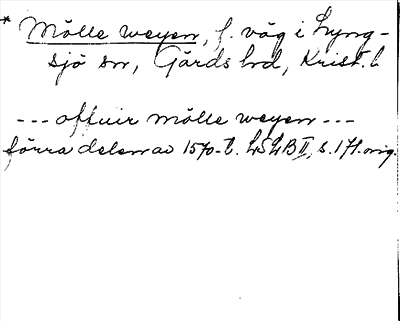 * Mölle weyen, f. väg i Lyng-
sjö sn, Gärds hd, Krist. l
--- offuir mölle weyen ---
förra delen av 1570-t. LSLB II, s. 171. orig.